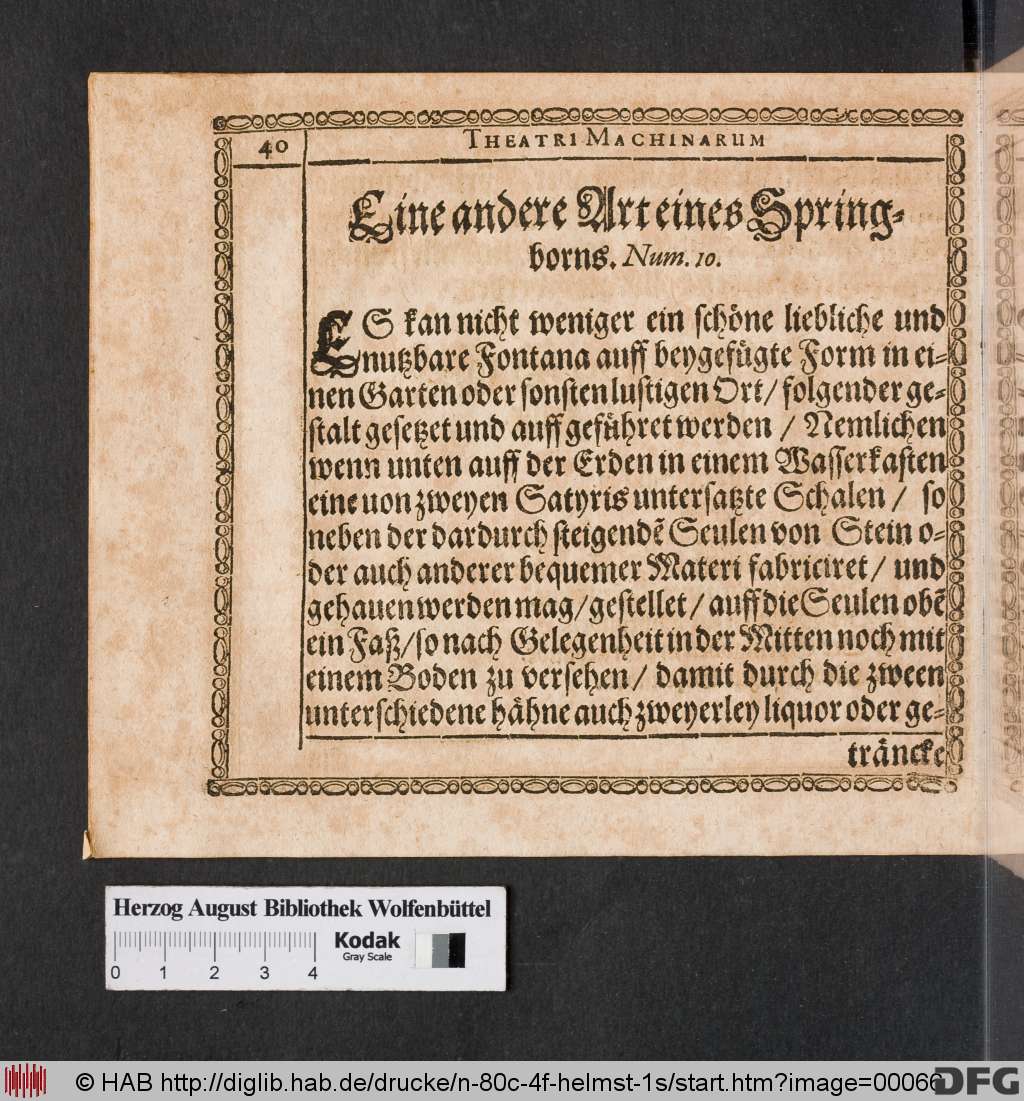 40
THEATRI MACHINARUM
Eine andere Art eines Spring-
borns. Num. 10.
ES kan nicht weniger ein schöne liebliche und
nutzbare Fontana auff beygefügte Form in ei-
nen Garten oder sonsten lustigen Ort/ folgender ge-
stalt gesetzet und auffgeführet werden / Nemlichen
wenn unten auff der Erden in einem Wasserkasten
eine uon zweyen Satyris untersatzte Schalen / so
neben der dardurch steigendẽ Seulen von Stein o-
der auch anderer bequemer Materi fabriciret / und
gehauen werden mag/gestellet / auff die Seulen obẽ
ein Faß/so nach Gelegenheit in der Mitten noch mit
einem Boden zu versehen / damit durch die zween
unterschiedene hähne auch zweyerley liquor oder ge-
träncke
Herzog August Bibliothek Wolfenbüttel
0 1 2 3 4
Kodak
Gray Scale
© HAB http://diglib.hab.de/drucke/n-80c-4f-helmst-1s/start.htm?image=00066
DFG